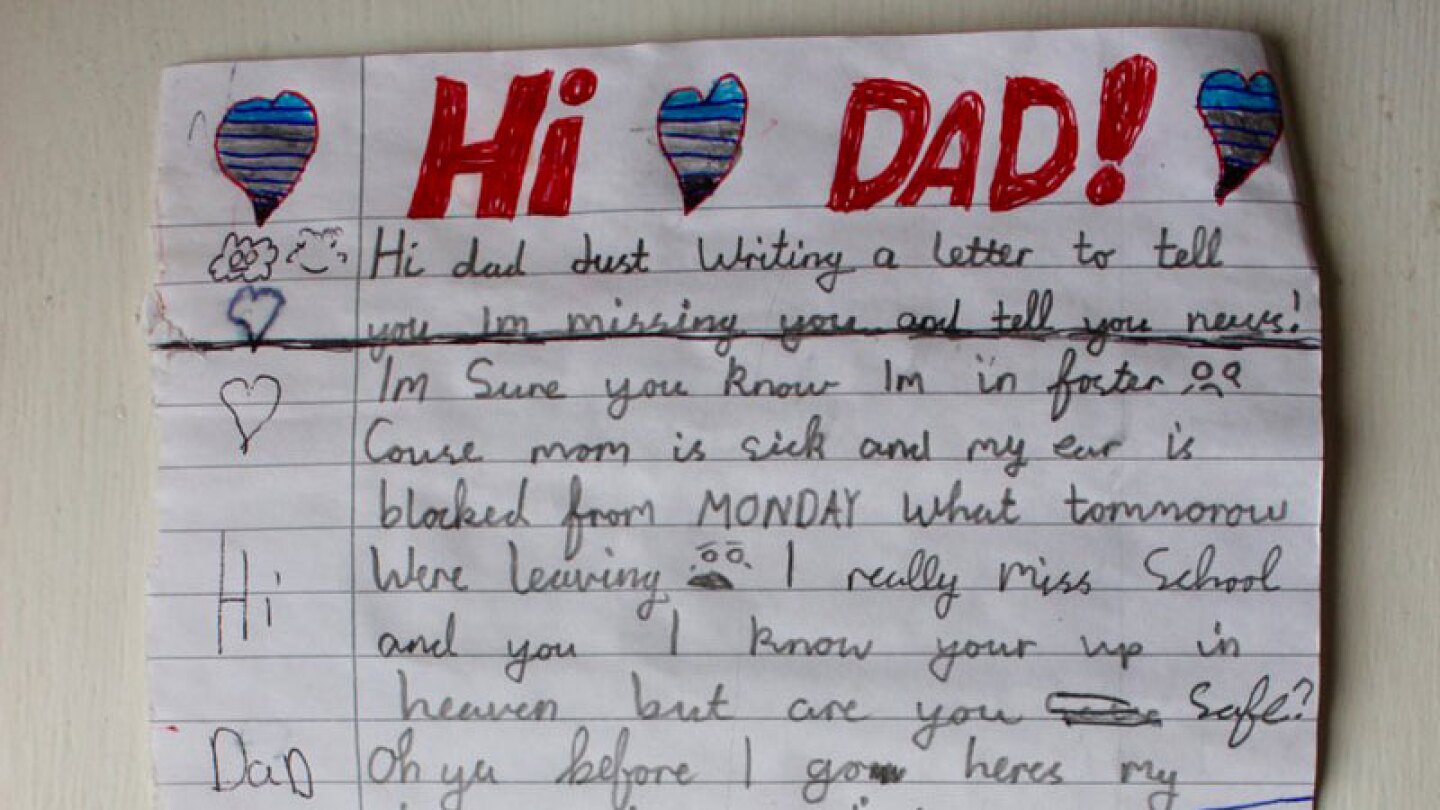 Hi DAD!
Hi dad Just Writing a letter to tell
you Im missing you and tell you news!
Im Sure you know Im in foster
Couse mom is sick and my ear is
blocked from MONDAY What tommorow
Hi
Were leaving I really miss School
and you I know your up in
heaven but are you Safe?
Dad
Oh ya before I go heres my